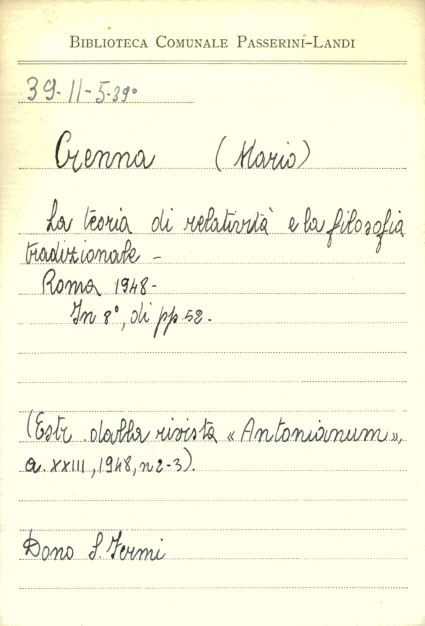 BIBLIOTECA COMUNALE PASSERINI-LANDI
39-11-5-39°
Crenna (Mario)
La teoria di relatività e la filosofia
tradizionale -
Roma 1948-
In 8°, di pp 52.
(Estr. dalla rivista «Antonianum»,
a. XXIII, 1948, n 2-3).
Dono S. Fermi